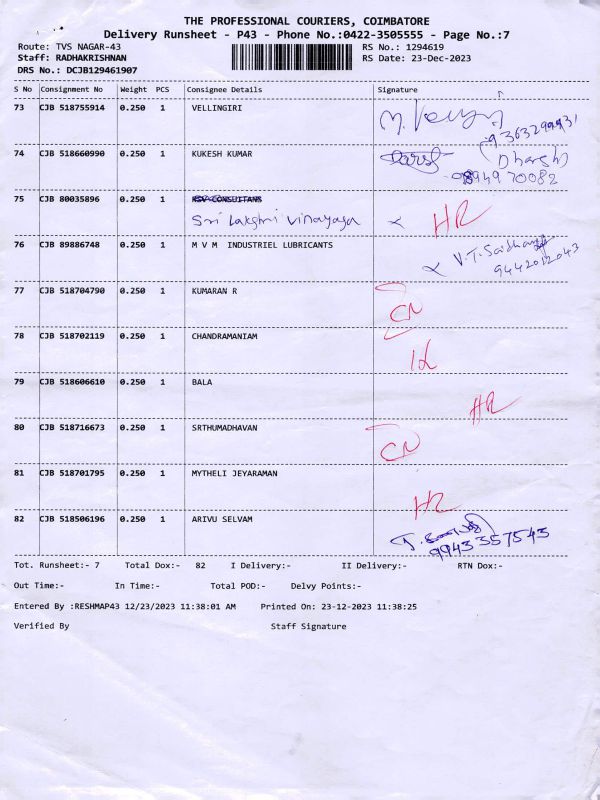 THE PROFESSIONAL COURIERS, COIMBATORE
Delivery Runsheet - P43 - Phone No.:0422-3505555 - Page No.:7
Route: TVS NAGAR-43 RS No.: 1294619
Staff: RADHAKRISHNAN RS Date: 23-Dec-2023
DRS No.: DCJB129461907
S No Consignment No Weight PCS Consignee Details Signature
73 CJB 518755914 0.250 1 VELLINGIRI
74 CJB 518660990 0.250 1 KUKESH KUMAR (Dharsh)
8949 70082
75 CJB 80035896 0.250 1
Sri Lakshri Vinayaga HR
76 CJB 89886748 0.250 1 M V M INDUSTRIEL LUBRICANTS
9442012043
77 CJB 518704790 0.250 1 KUMARAN R
CN
78 CJB 518702119 0.250 1 CHANDRAMANIAM
79 CJB 518606610 0.250 1 BALA
HR
80 CJB 518716673 0.250 1 SRTHUMADHAVAN
CN
81 CJB 518701795 0.250 1 MYTHELI JEYARAMAN
HR
82 CJB 518506196 0.250 1 ARIVU SELVAM
9943357543
Tot. Runsheet:- 7 Total Dox:- 82 I Delivery:- II Delivery:- RTN Dox:-
Out Time:- In Time:- Total POD:- Delvy Points:-
Entered By :RESHMAP43 12/23/2023 11:38:01 AM Printed On: 23-12-2023 11:38:25
Verified By Staff Signature